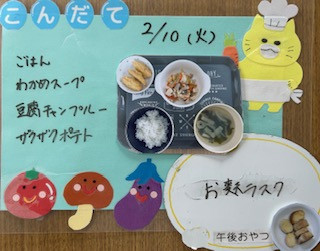 こんだて
2/10(火)
ごはん
わかめスープ
豆腐チャンプルー
ザクザクポテト
お麩ラスク
午後おやつ